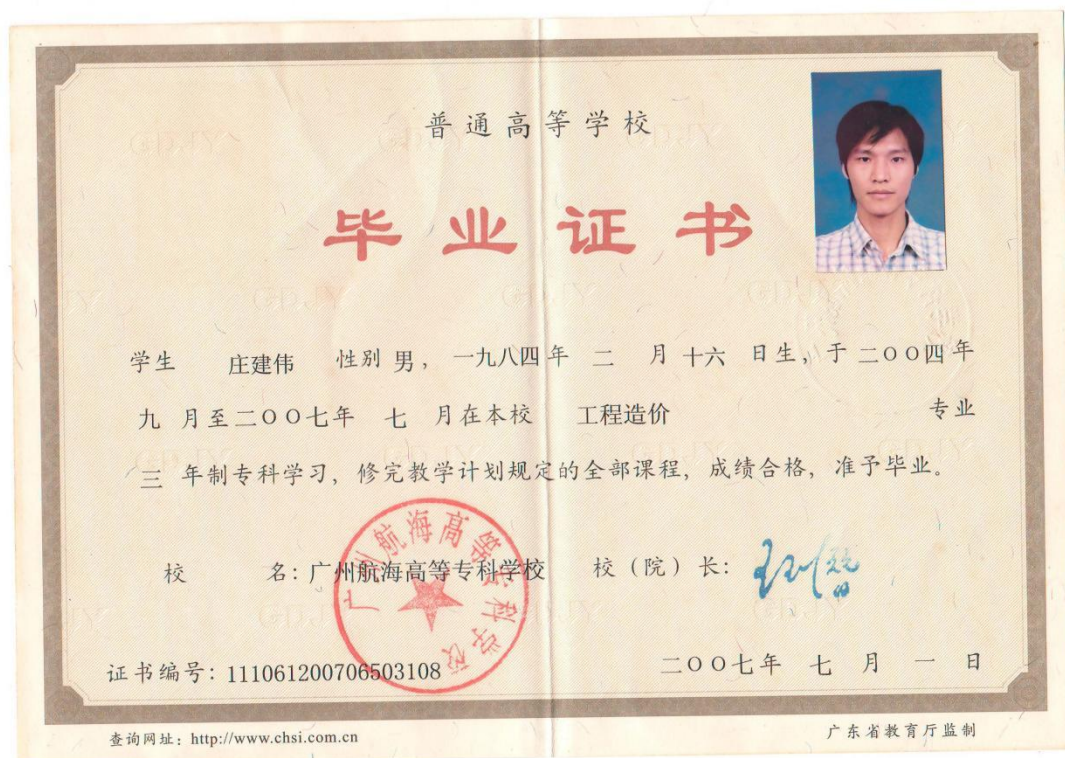 普通高等学校
毕业证书
学生 庄建伟 性别 男， 一九八四 年 二 月 十六 日生，于 二〇〇四 年
九 月至 二〇〇七年 七 月在本校 工程造价 专业
三 年制专科学习，修完教学计划规定的全部课程，成绩合格，准予毕业。
校 名：广州航海高等专科学校 校（院）长：
广州航海高等专科学校
证书编号：111061200706503108 二〇〇七年 七 月 一 日
查询网址：http://www.chsi.com.cn 广东省教育厅监制
GDJY